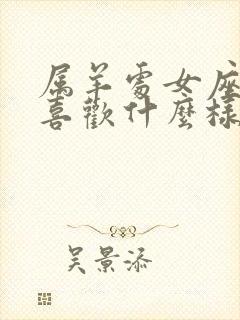 属羊處女座
喜歡什麼樣
吴景添